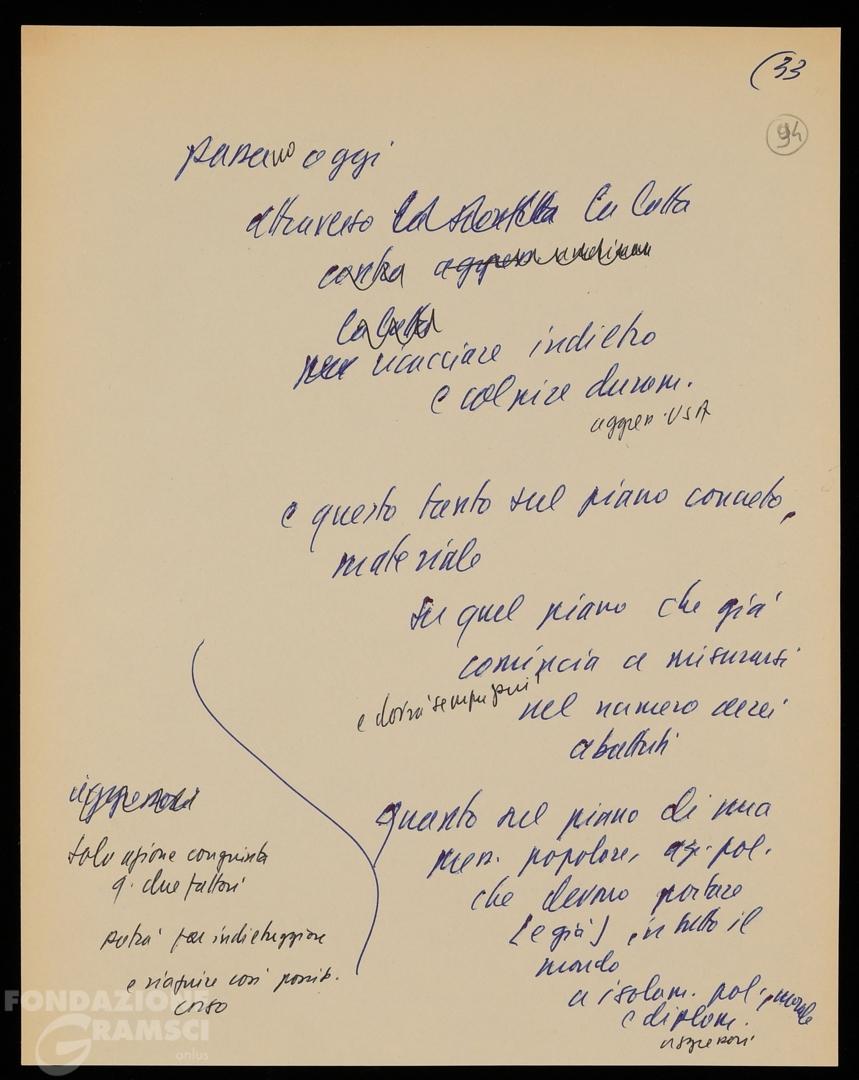 (33
94
passano oggi
attraverso la lotta
contro
la lotta
per ricacciare indietro
e colpire duram.
aggres. USA
e questo tanto sul piano concreto,
materiale
su quel piano che già
comincia a misurarsi
e dovrà sempre più
nel numero aerei
abattuti
quanto sul piano di una
press. popolare, az. pol.
che devono portare
[e già] in tutto il
mondo
a isolam. pol., morale
e diplom.
aggressori
aggressori
solo azione congiunta
q. due fattori
potrà far indietreggiare
e riaprire così possib.
corso
FONDAZIONE
GRAMSCI
onlus